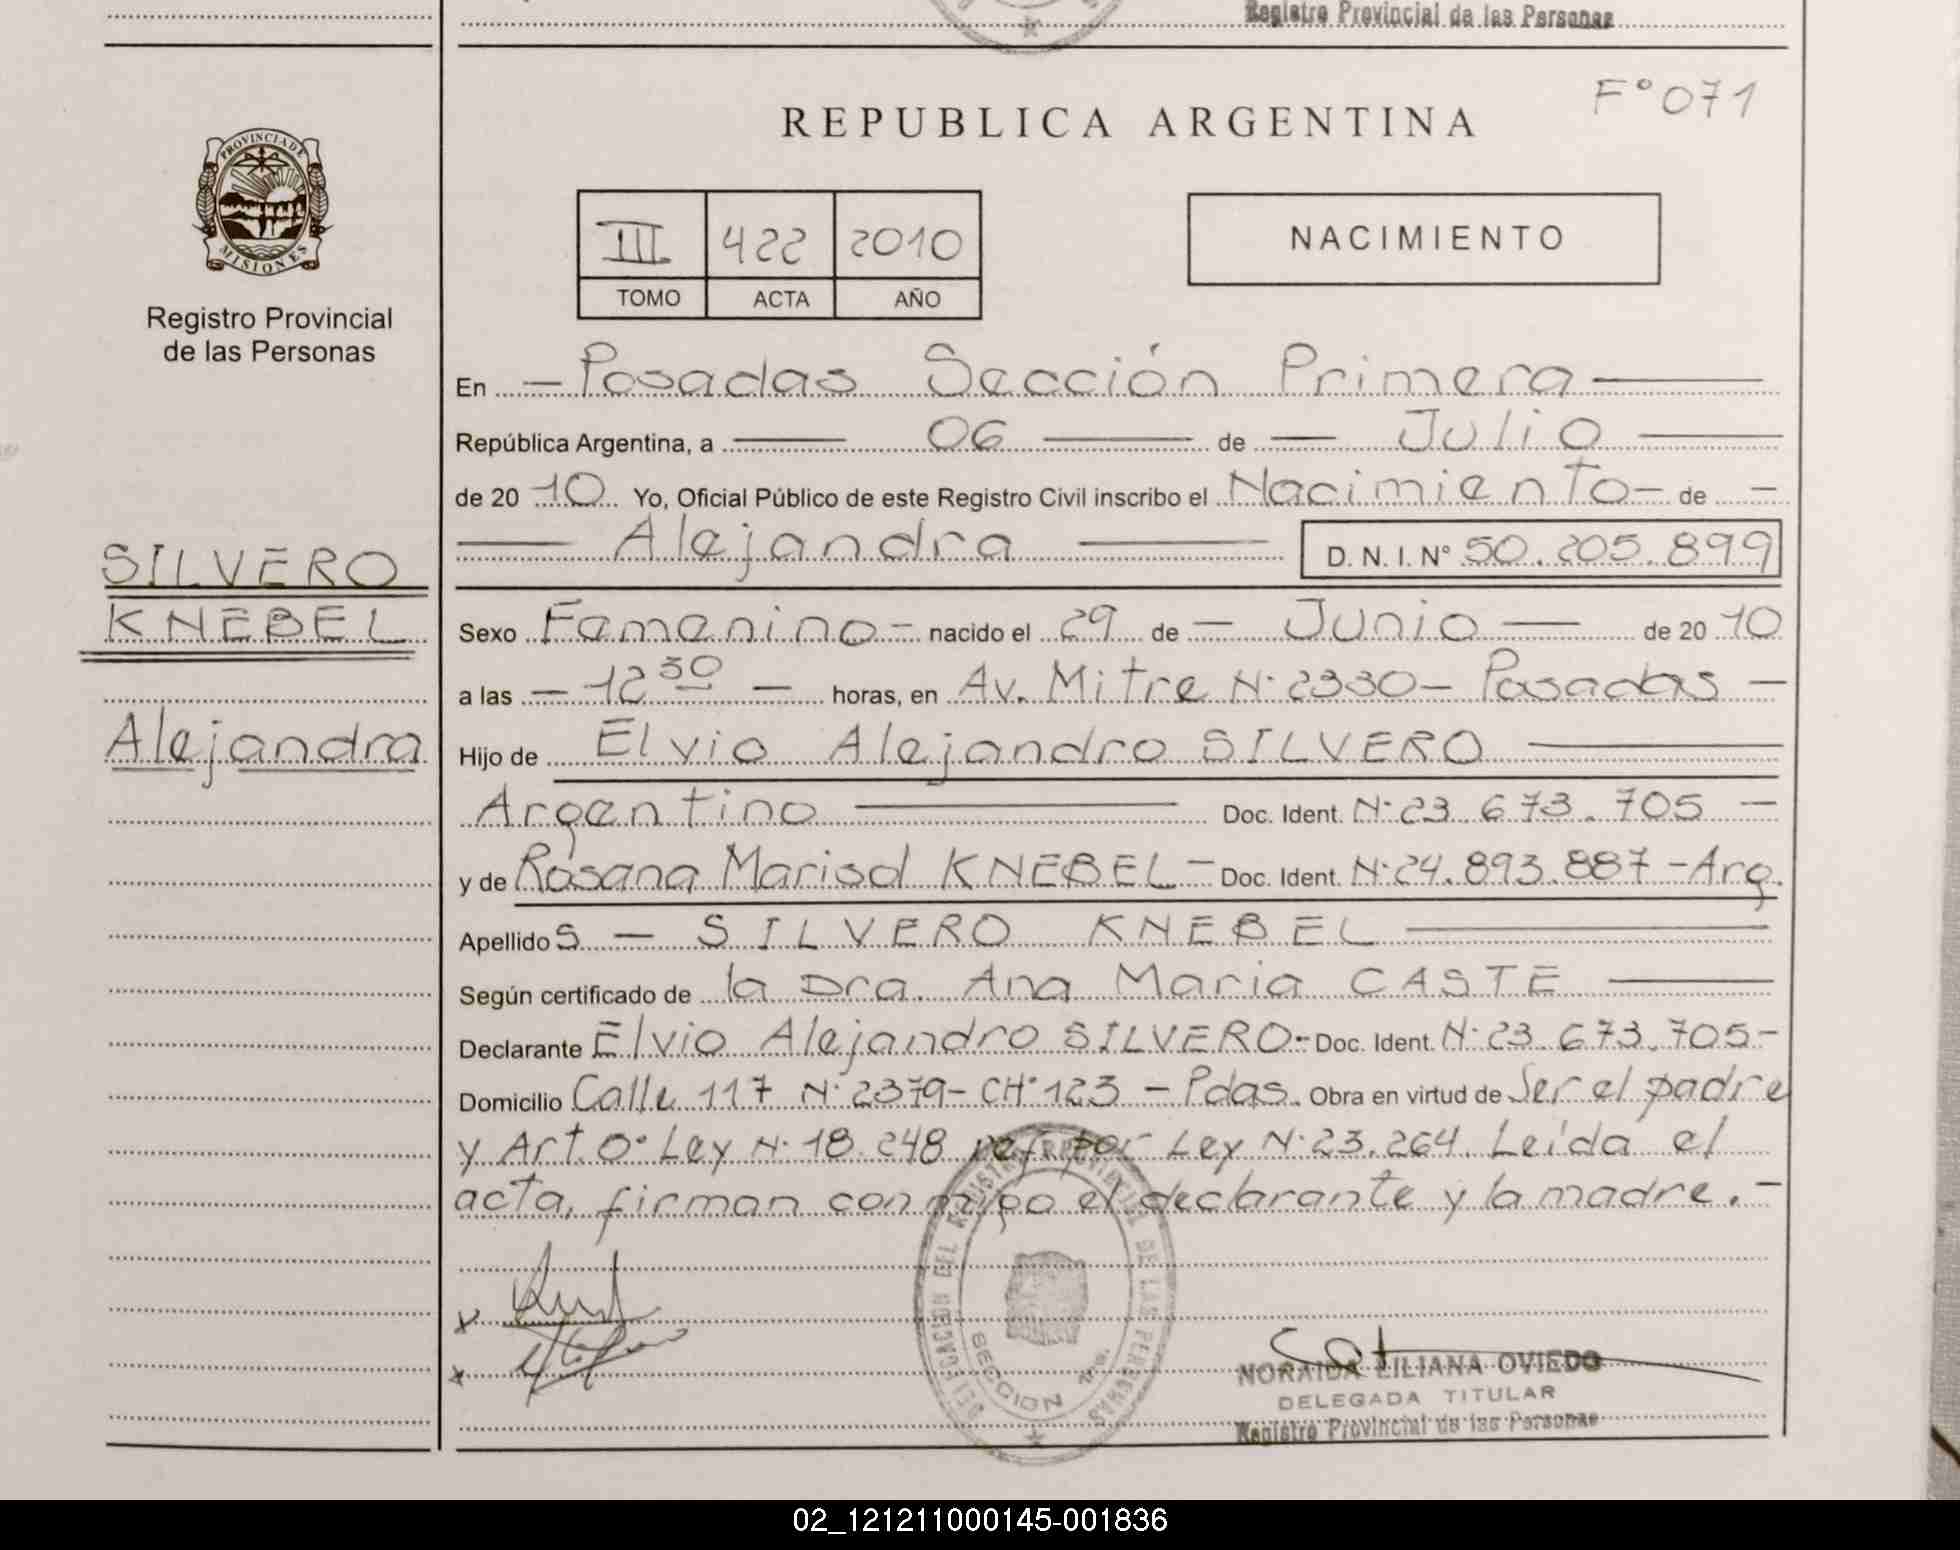 Registro Provincial de las Personas
F° 071
REPUBLICA ARGENTINA
PROVINCIA DE
MISIONES
Registro Provincial
de las Personas
III 422 2010
TOMO ACTA AÑO
NACIMIENTO
En — Posadas Sección Primera —
República Argentina, a — 06 — de — Julio —
de 20 10 Yo, Oficial Público de este Registro Civil inscribo el Nacimiento - de —
— Alejandra — D. N. I. N° 50.205.899
SILVERO
KNEBEL
Alejandra
Sexo Femenino - nacido el 29 de — Junio — de 20 10
a las — 12 30 — horas, en Av. Mitre N° 2330 - Posadas —
Hijo de Elvio Alejandro SILVERO —
Argentino — Doc. Ident. N° 23.673.705 —
y de Rosana Marisol KNEBEL - Doc. Ident. N° 24.893.887 - Arg.
Apellido s — SILVERO KNEBEL —
Según certificado de la Dra. Ana Maria CASTE —
Declarante Elvio Alejandro SILVERO - Doc. Ident. N° 23.673.705 -
Domicilio Calle 117 N° 2379 - CH° 123 - Pdas. Obra en virtud de Ser el padre
y Art. 0° Ley N° 18.248 ref. por Ley N° 23.264. Leída el
acta, firman conmigo el declarante y la madre. -
DELEGACION DEL REGISTRO PROVINCIAL DE LAS PERSONAS
SECCION 1ra.
NORAIDA LILIANA OVIEDO
DELEGADA TITULAR
Registro Provincial de las Personas
02_121211000145-001836